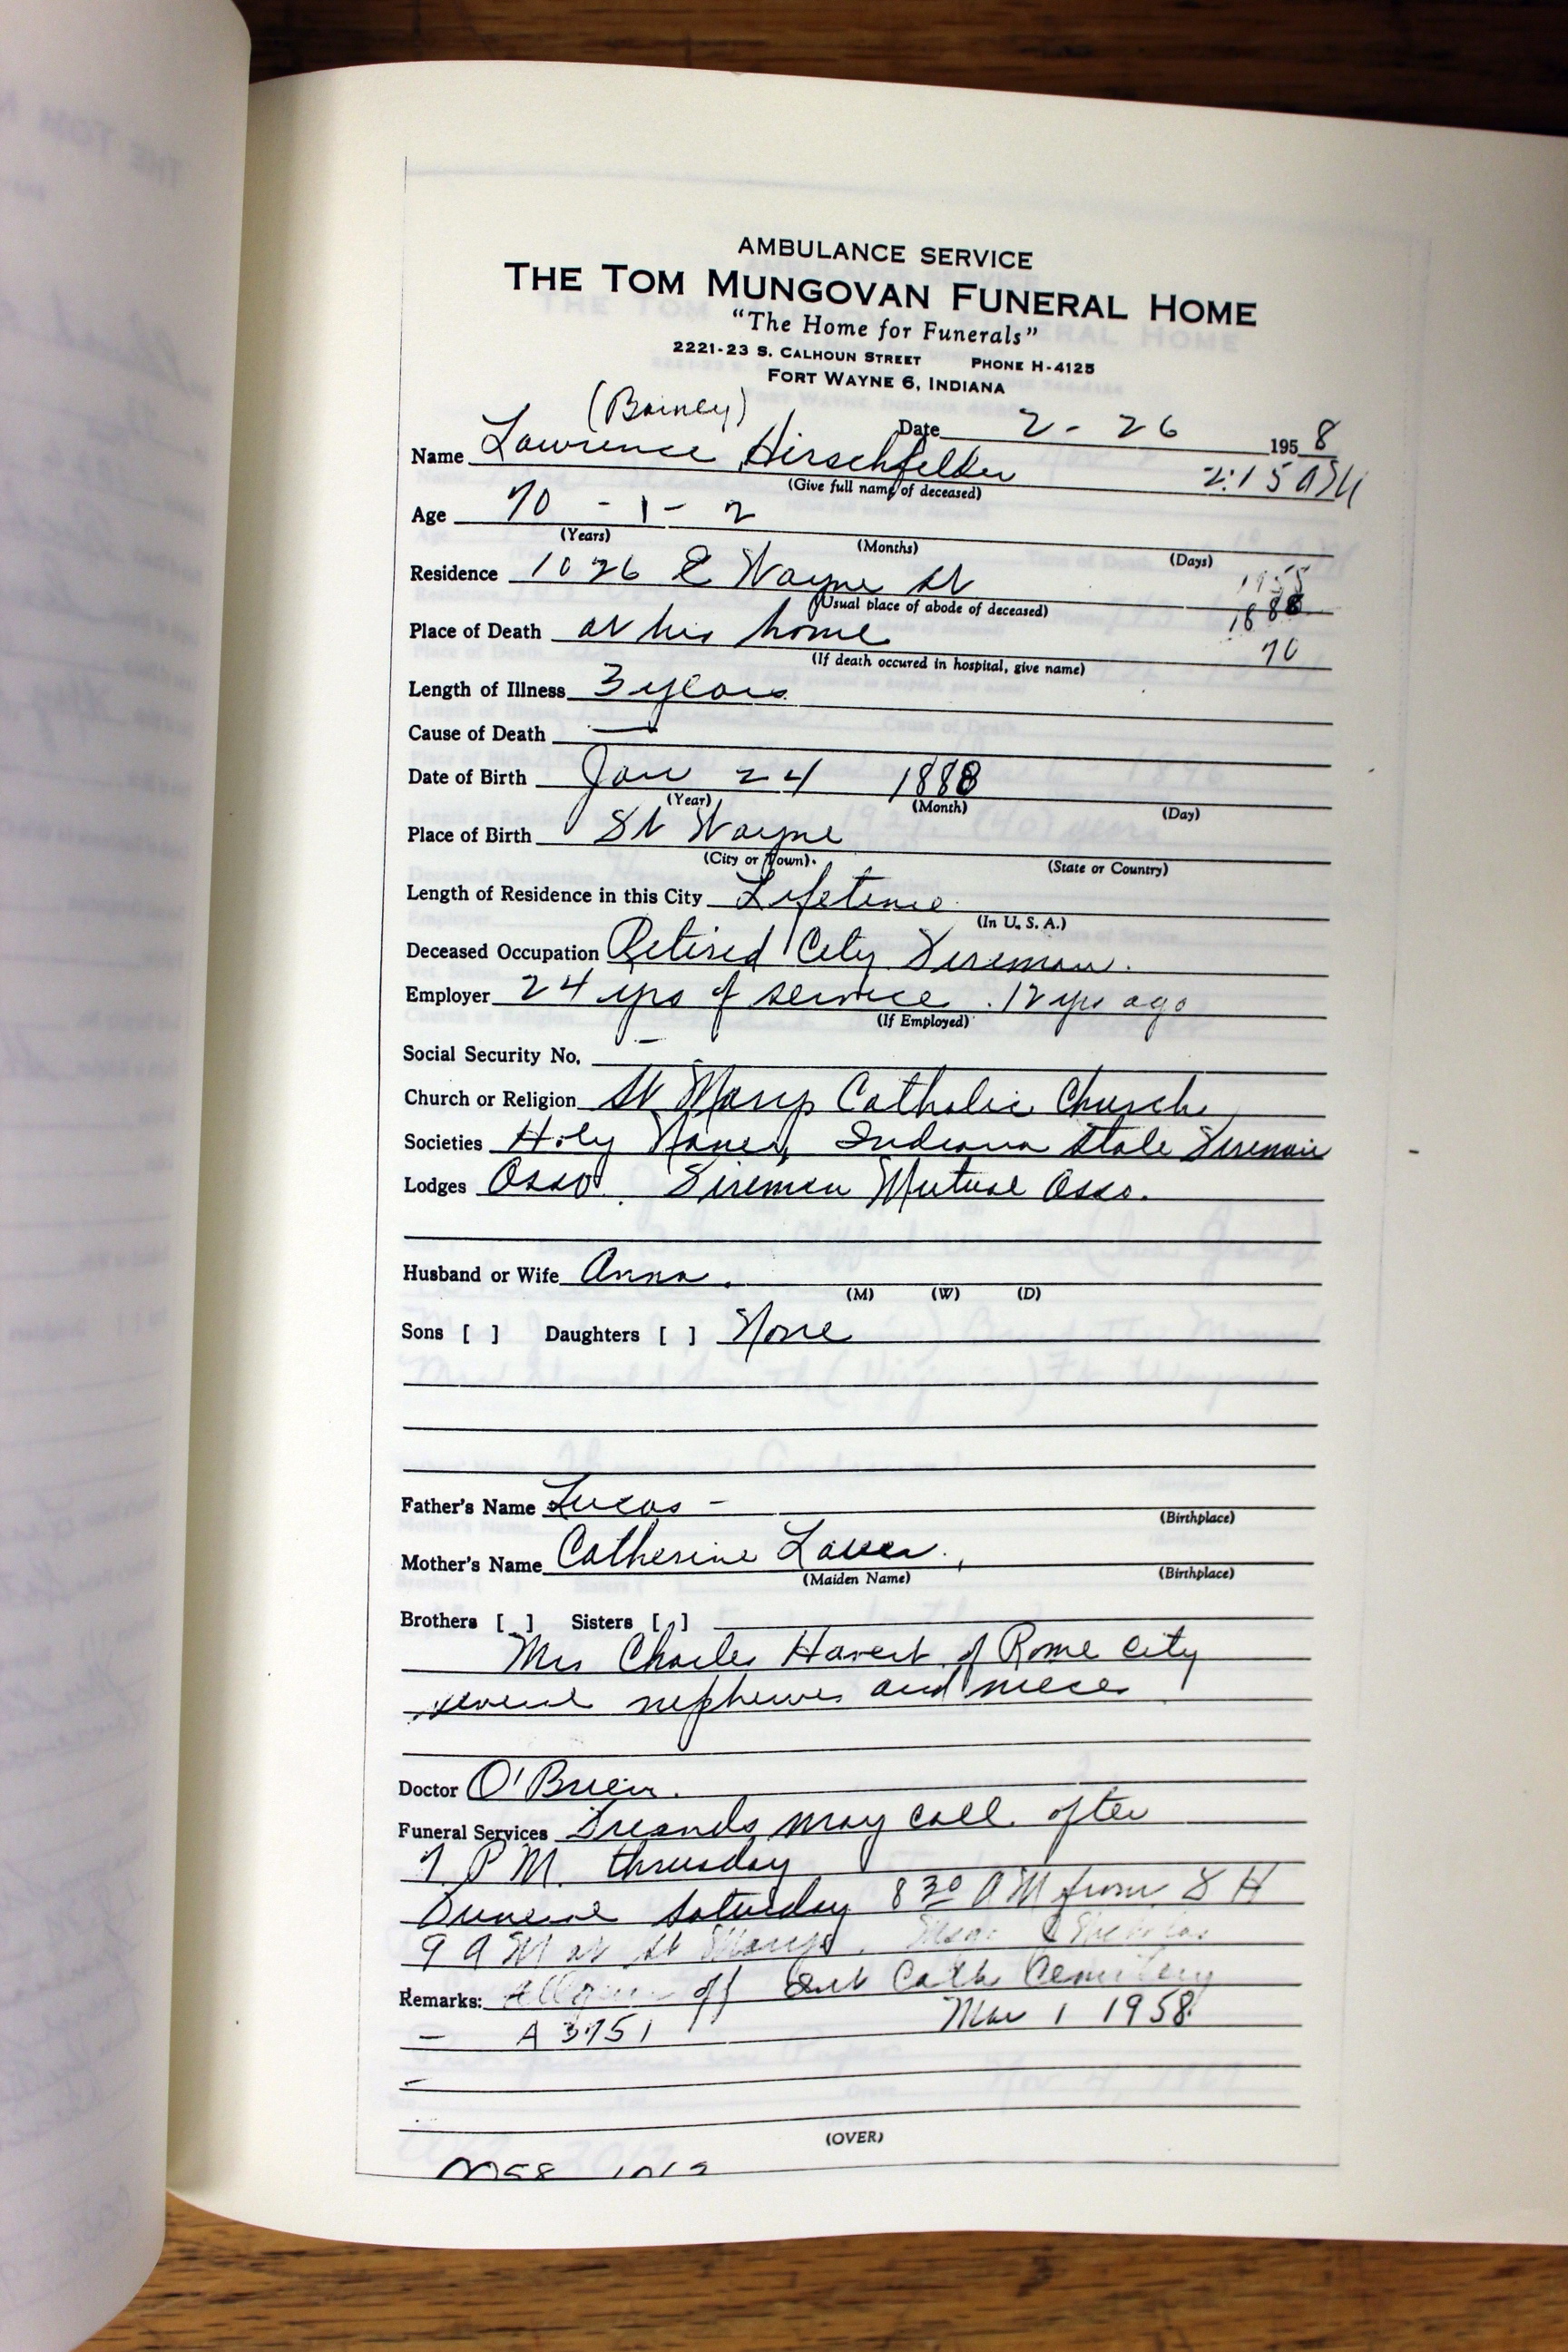 AMBULANCE SERVICE
THE TOM MUNGOVAN FUNERAL HOME
"The Home for Funerals"
2221-23 S. CALHOUN STREET PHONE H-4125
FORT WAYNE 6, INDIANA
(Barney)
Date 2 - 26 195 8
Name Lawrence Hirschfelder 2:15 AM
(Give full name of deceased)
Age 70 - 1 - 2
(Years) (Months) (Days)
Residence 1026 E Wayne St
(Usual place of abode of deceased) 1888
Place of Death at his home 70
(If death occured in hospital, give name)
Length of Illness 3 years
Cause of Death —
Date of Birth Jan 24 1888
(Year) (Month) (Day)
Place of Birth Ft Wayne
(City or Town). (State or Country)
Length of Residence in this City Lifetime
(In U. S. A.)
Deceased Occupation Retired City Fireman.
Employer 24 yrs of service. 12 yrs ago
(If Employed)
Social Security No. —
Church or Religion St Marys Catholic Church
Societies Holy Name, Indiana State Firemans
Lodges Asso. Firemen Mutual Asso.
Husband or Wife Anna.
(M) (W) (D)
Sons [ ] Daughters [ ] None
Father's Name Lucas -
(Birthplace)
Mother's Name Catherine Lauer.
(Maiden Name) (Birthplace)
Brothers [ ] Sisters [ ]
Mrs Charles Havert of Rome City
several nephews and nieces
Doctor O'Brien.
Funeral Services Friends may call after
7 P M. thrusday
Funeral Saturday 8 30 A M from F H
9 A M at St Marys.
Remarks: off Cath Cemetery
— A 3751 Mar 1 1958
(OVER)